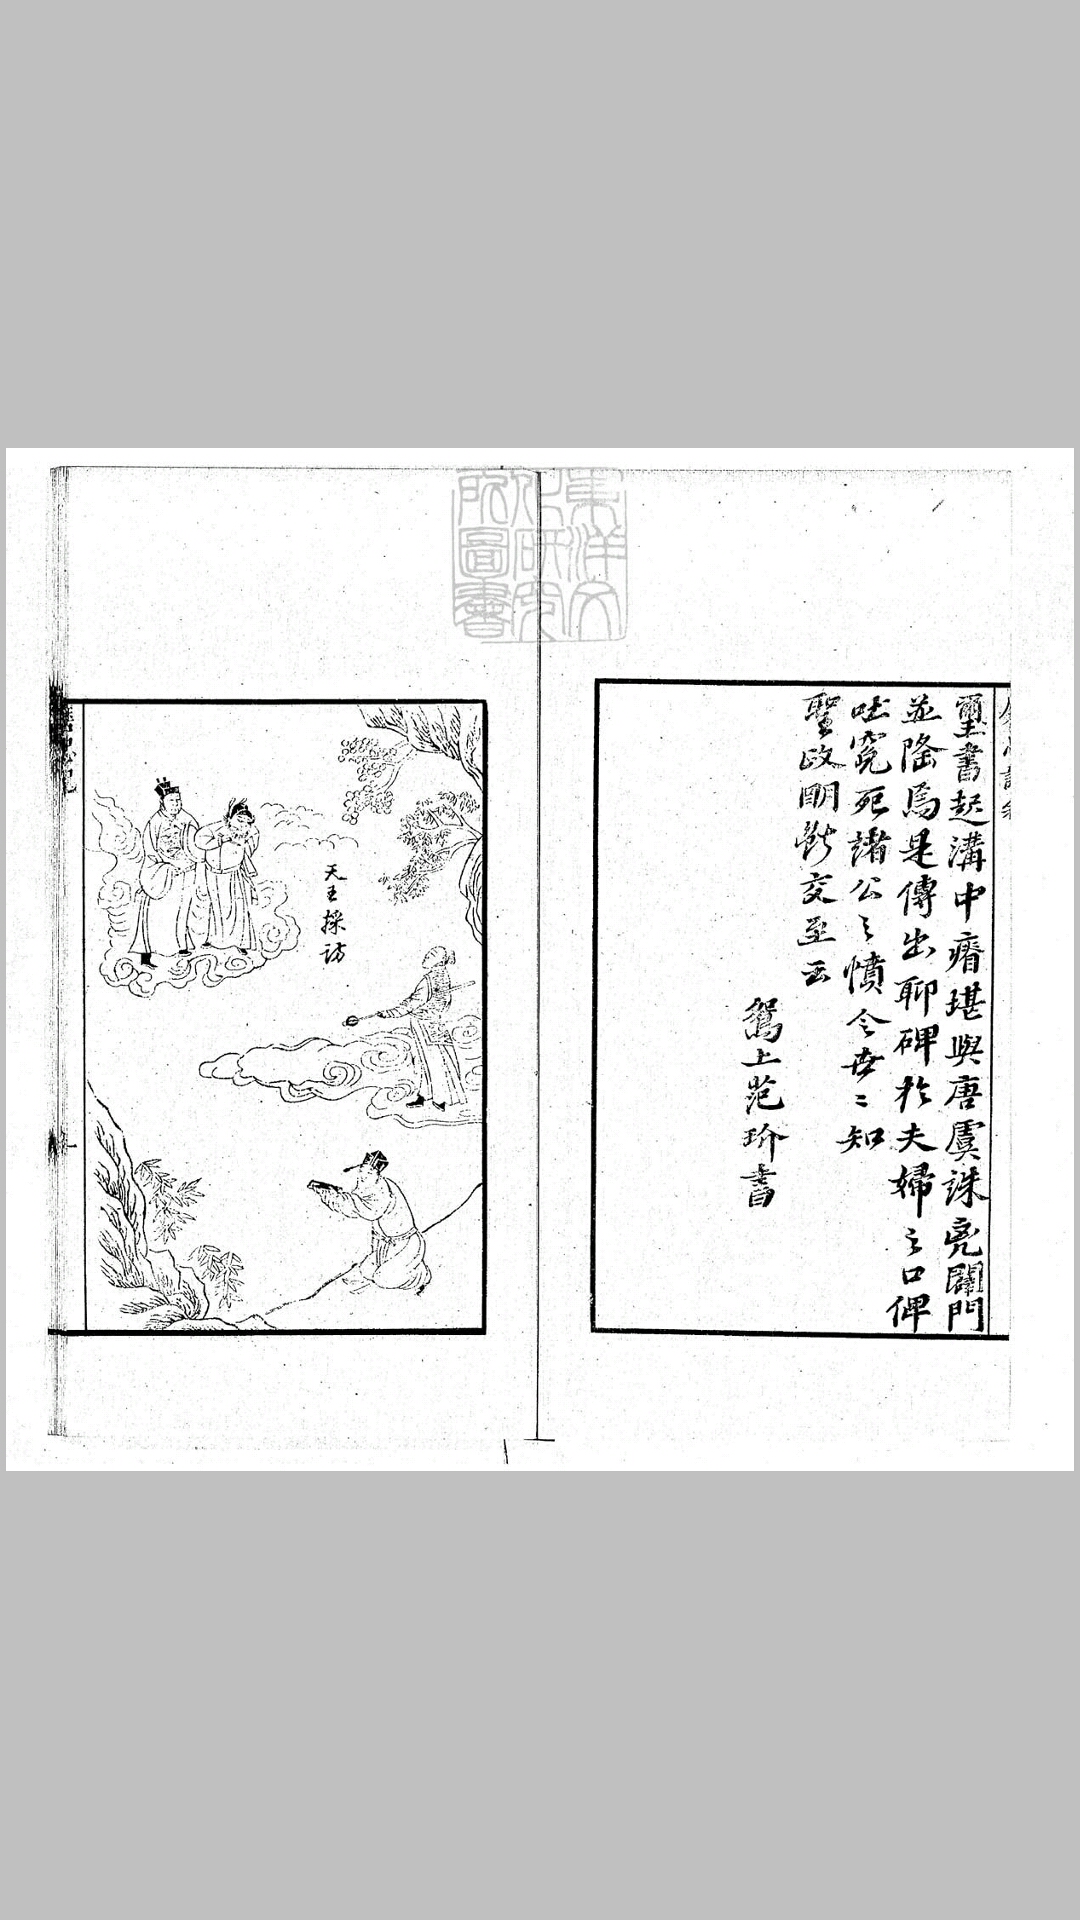 璽書起溝中瘠堪與唐虞誅兇闢門
並隆焉是傳出聊碑於夫婦之口俾
吐冤死諸公之憤令世〻知
聖政明斷交至云
鴛上范玠書
東洋文
化研究
所圖書
天王採訪
一